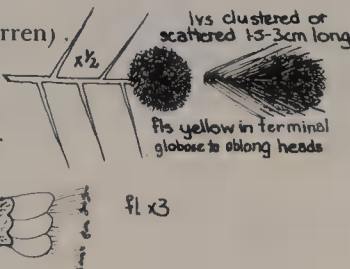 rren)
lvs clustered or
scattered 1·5-3cm long
x½
fls yellow in terminal
globose to oblong heads
fl x3